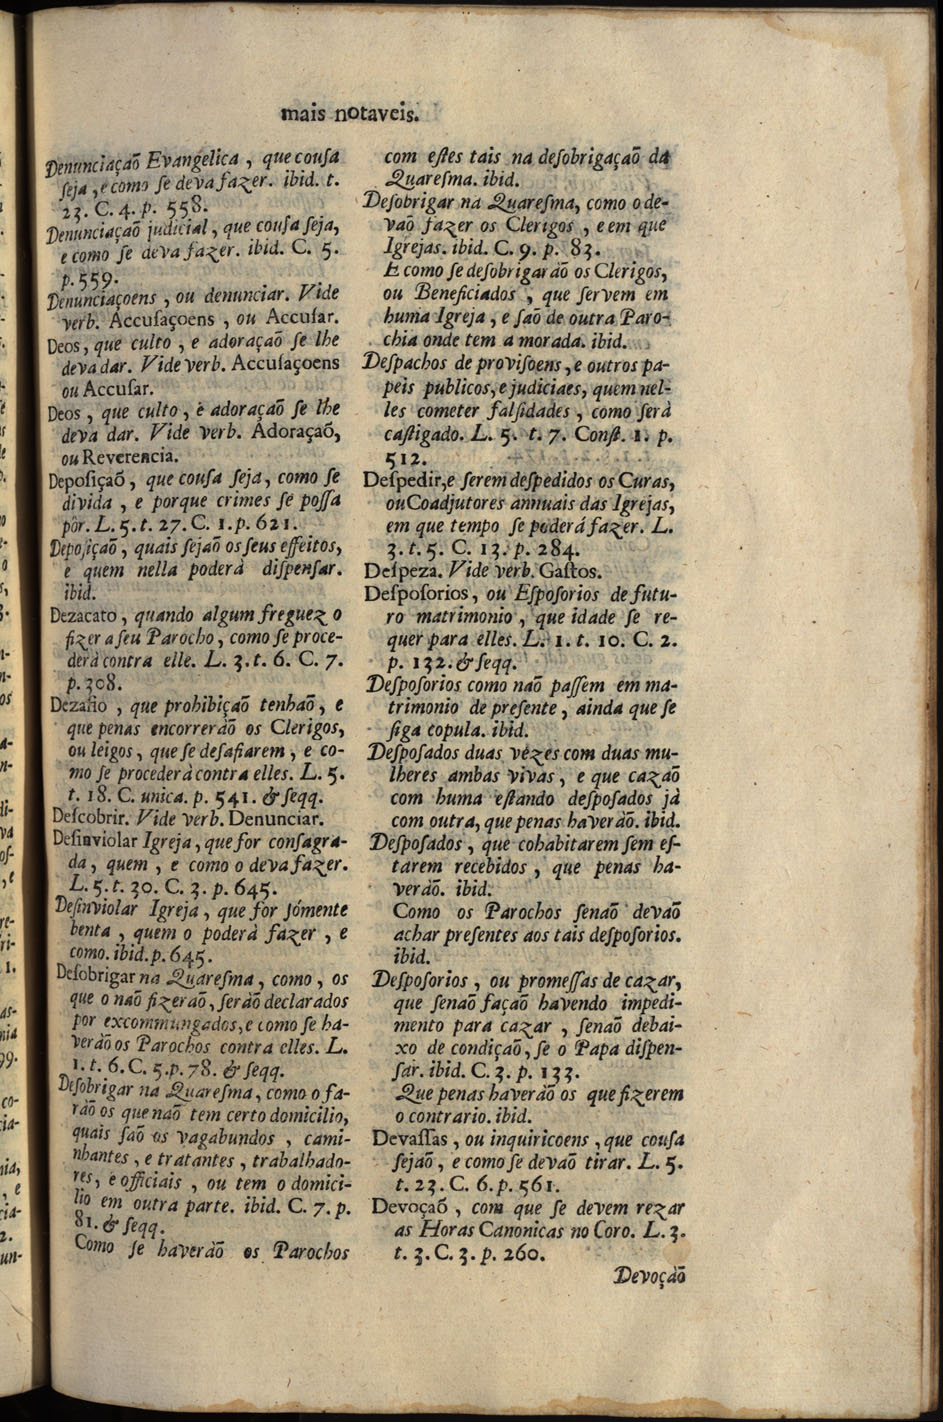 mais notaveis.
Denunciaçaõ Evangelica, que cousa
ſeja, e como ſe deva fazer. ibid. t.
23. C. 4. p. 558.
Denunciaçaõ judicial, que couſa ſeja,
e como ſe deva fazer. ibid. C. 5.
p. 559.
Denunciaçoens, ou denunciar. Vide
verb. Accuſaçoens, ou Accuſar.
Deos, que culto, e adoraçaõ ſe lhe
deva dar. Vide verb. Accuſaçoens
ou Accuſar.
Deos, que culto, e adoraçaõ ſe lhe
deva dar. Vide verb. Adoraçaõ,
ou Reverencia.
Depoſiçaõ, que couſa ſeja, como ſe
divida, e porque crimes ſe poſſa
pòr. L. 5. t. 27. C. 1. p. 621.
Depoſiçaõ, quais ſejaõ os ſeus effeitos,
e quem nella poderà diſpenſar.
ibid.
Dezacato, quando algum freguez o
fizer a ſeu Parocho, como ſe proce-
derà contra elle. L. 3. t. 6. C. 7.
p. 308.
Dezafio, que prohibiçaõ tenhaõ, e
que penas encorreràõ os Clerigos,
ou leigos, que ſe deſafiarem, e co-
mo ſe procederà contra elles. L. 5.
t. 18. C. unica. p. 541. & ſeqq.
Deſcobrir. Vide verb. Denunciar.
Deſinviolar Igreja, que for conſagra-
da, quem, e como o deva fazer.
L. 5. t. 30. C. 3. p. 645.
Deſinviolar Igreja, que for ſómente
benta, quem o poderà fazer, e
como. ibid. p. 645.
Deſobrigar na Quareſma, como, os
que o naõ fizeràõ, ſeràõ declarados
por excommungados, e como ſe ha-
veràõ os Parochos contra elles. L.
1. t. 6. C. 5. p. 78. & ſeqq.
Deſobrigar na Quareſma, como o fa-
ràõ os que naõ tem certo domicilio,
quais ſaõ os vagabundos, cami-
nhantes, e tratantes, trabalhado-
res, e officiais, ou tem o domici-
lio em outra parte. ibid. C. 7. p.
81. & ſeqq.
Como ſe haveràõ os Parochos
com eſtes tais na deſobrigaçaõ da
Quareſma. ibid.
Deſobrigar na Quareſma, como o de-
vaõ fazer os Clerigos, e em que
Igrejas. ibid. C. 9. p. 83.
E como ſe deſobrigaràõ os Clerigos,
ou Beneficiados, que ſervem em
huma Igreja, e ſaõ de outra Paro-
chia onde tem a morada. ibid.
Deſpachos de proviſoens, e outros pa-
peis publicos, e judiciaes, quem nel-
les cometer falſidades, como ſerà
caſtigado. L. 5. t. 7. Conſt. 1. p.
512.
Deſpedir, e ſerem deſpedidos os Curas,
ou Coadjutores annuais das Igrejas,
em que tempo ſe poderá fazer. L.
3. t. 5. C. 13. p. 284.
Deſpeza. Vide verb. Gaſtos.
Deſpoſorios, ou Eſpoſorios de futu-
ro matrimonio, que idade ſe re-
quer para elles. L. 1. t. 10. C. 2.
p. 132. & ſeqq.
Deſpoſorios como naõ paſſem em ma-
trimonio de preſente, ainda que ſe
ſiga copula. ibid.
Deſpoſados duas vezes com duas mu-
lheres ambas vivas, e que cazaõ
com huma eſtando deſpoſados jà
com outra, que penas haveràõ. ibid.
Deſpoſados, que cohabitarem ſem eſ-
tarem recebidos, que penas ha-
veràõ. ibid.
Como os Parochos ſenaõ devaõ
achar preſentes aos tais deſpoſorios.
ibid.
Deſpoſorios, ou promeſſas de cazar,
que ſenaõ façaõ havendo impedi-
mento para cazar, ſenaõ debai-
xo de condiçaõ, ſe o Papa diſpen-
ſar. ibid. C. 3. p. 133.
Que penas haveràõ os que fizerem
o contrario. ibid.
Devaſſas, ou inquiricoens, que couſa
ſejaõ, e como ſe devaõ tirar. L. 5.
t. 23. C. 6. p. 561.
Devoçaõ, com que ſe devem rezar
as Horas Canonicas no Coro. L. 3.
t. 3. C. 3. p. 260.
Devoçaõ